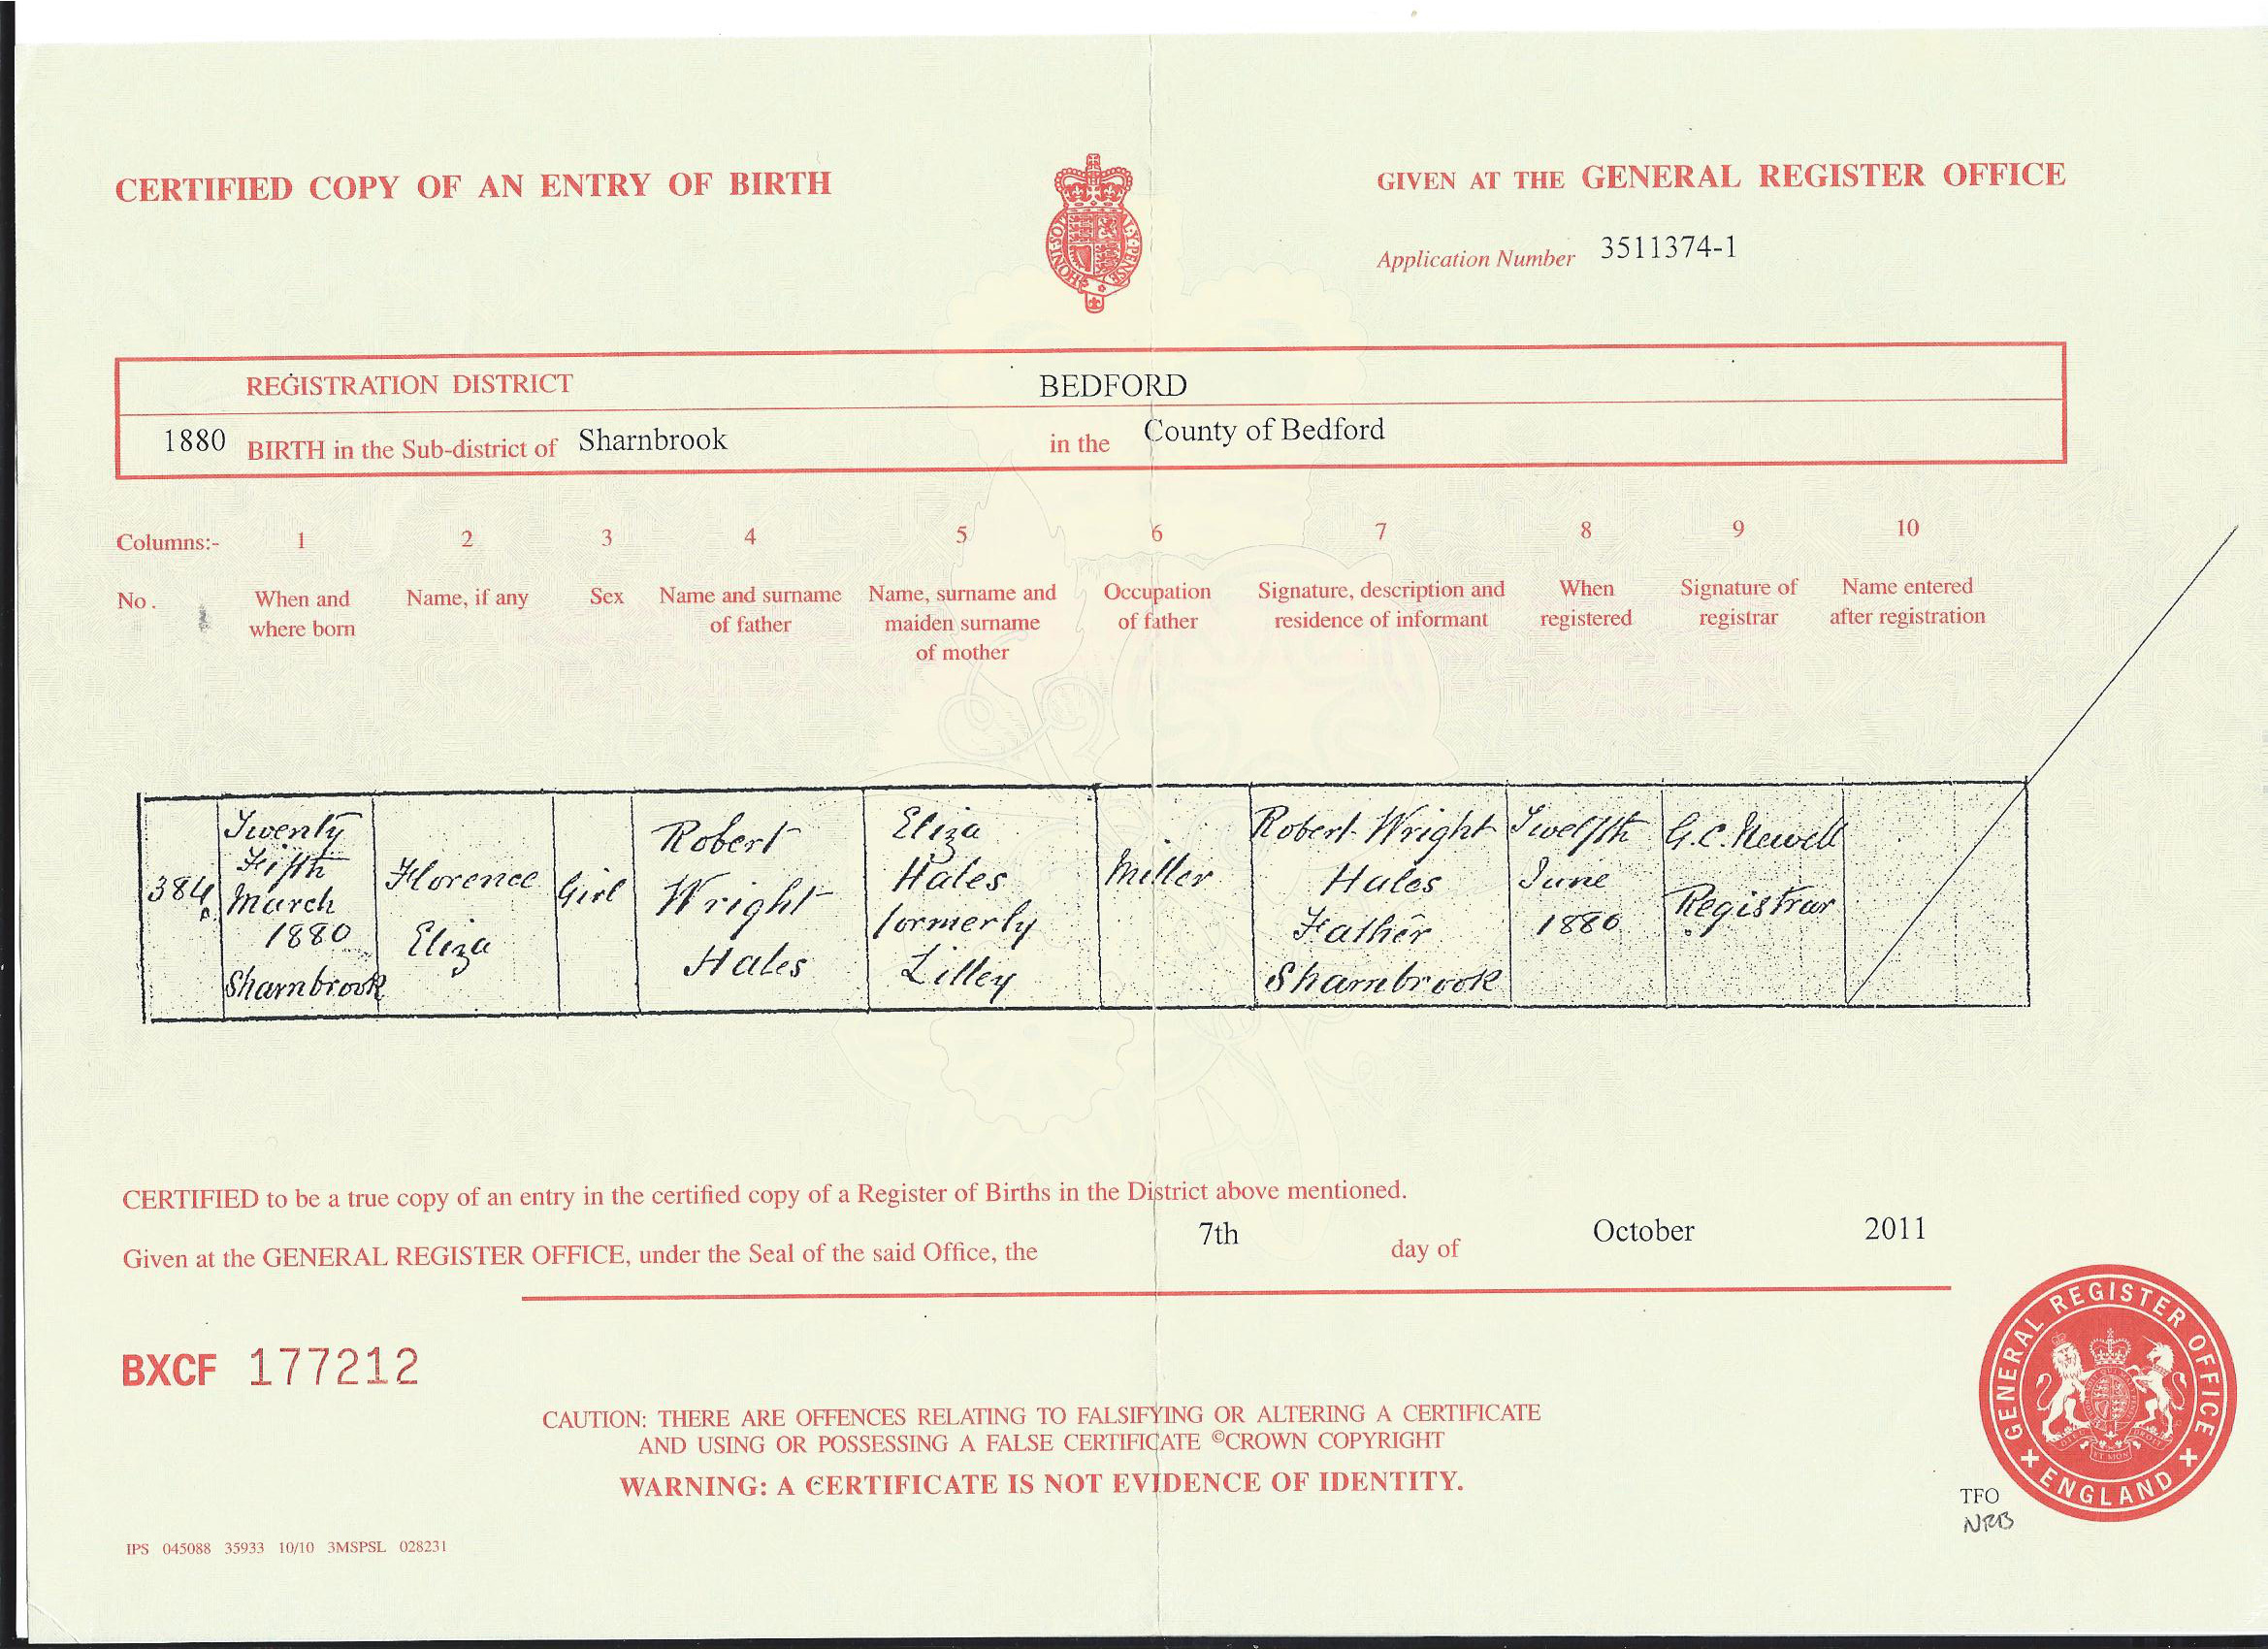 CERTIFIED COPY OF AN ENTRY OF BIRTH
GIVEN AT THE GENERAL REGISTER OFFICE
Application Number 3511374-1
REGISTRATION DISTRICT BEDFORD
1880 BIRTH in the Sub-district of Sharnbrook in the County of Bedford
Columns:- 1 2 3 4 5 6 7 8 9 10
No. When and where born
Name, if any
Sex
Name and surname of father
Name, surname and maiden surname of mother
Occupation of father
Signature, description and residence of informant
When registered
Signature of registrar
Name entered after registration
384
Twenty
Fifth
March
1880
Sharnbrook
Florence
Eliza
Girl
Robert
Wright
Hales
Eliza
Hales
formerly
Lilley
Miller
Robert Wright
Hales
Father
Sharnbrook
Twelfth
June
1880
G.C. Newell
Registrar
CERTIFIED to be a true copy of an entry in the certified copy of a Register of Births in the District above mentioned.
Given at the GENERAL REGISTER OFFICE, under the Seal of the said Office, the 7th day of October 2011
BXCF 177212
CAUTION: THERE ARE OFFENCES RELATING TO FALSIFYING OR ALTERING A CERTIFICATE
AND USING OR POSSESSING A FALSE CERTIFICATE ©CROWN COPYRIGHT
WARNING: A CERTIFICATE IS NOT EVIDENCE OF IDENTITY.
GENERAL REGISTER OFFICE
ENGLAND
TFO
NRB
IPS 045088 35933 10/10 3MSPSL 028231